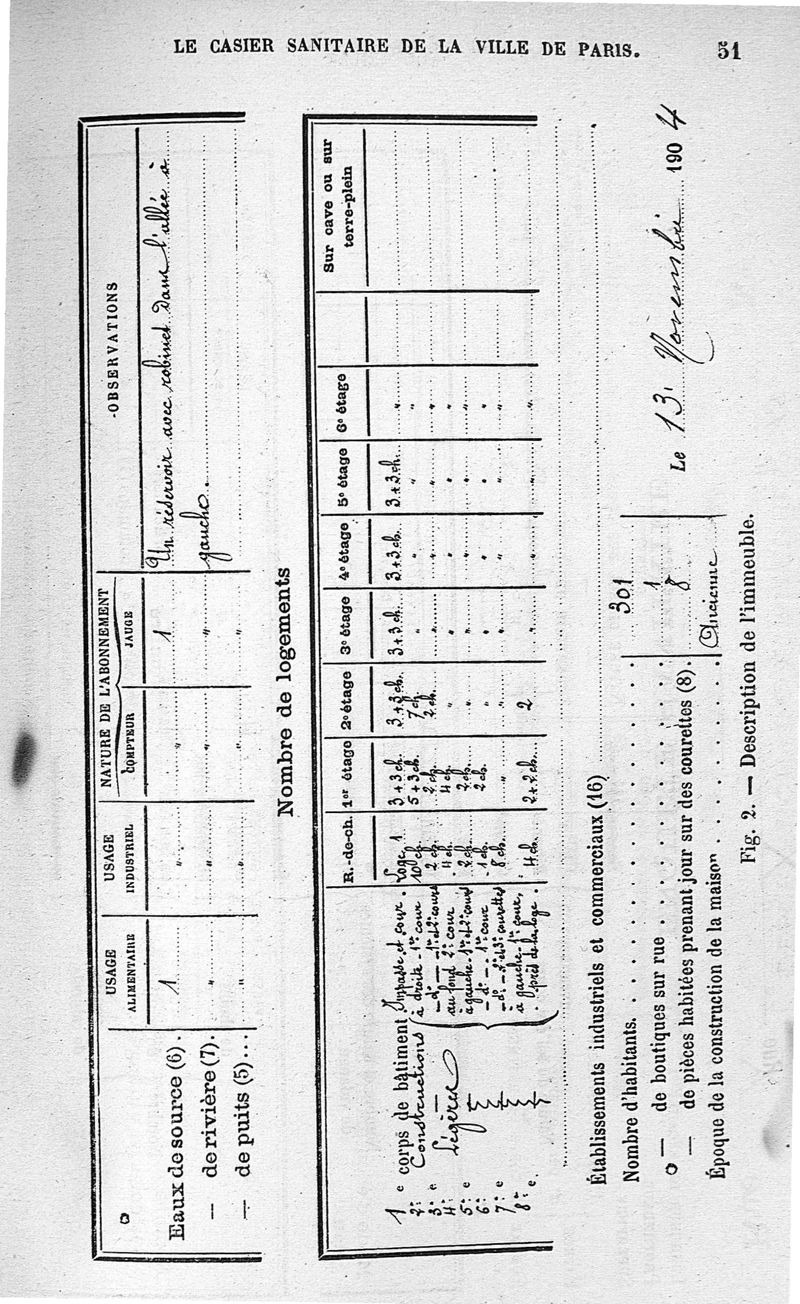 LE CASIER SANITAIRE DE LA VILLE DE PARIS. 51
USAGE ALIMENTAIRE USAGE INDUSTRIEL NATURE DE L'ABONNEMENT COMPTEUR JAUGE OBSERVATIONS
Eaux de source (6). 1 " " 1 Un réservoir avec robinet dans l'allée à
— de rivière (7). " " " " gauche.
— de puits (5)... " " " "
Nombre de logements
R.-de-ch. 1er étage 2e étage 3e étage 4e étage 5e étage 6e étage Sur cave ou sur terre-plein
1 e corps de bâtiment Impasse et cour. Loge 1 3+3 ch. 3+3 ch. 3+3 ch. 3+3 ch. 3+3 ch. "
2e Constructions à droite - 1re cour 10 ch. 5+3 ch. 7 ch. " " " "
3e e — d° — 1re et 2e cours 2 ch. 2 ch. 2 ch. " " " "
4e légères au fond 2e cour 4 ch. 4 ch. " " " " "
5e e à gauche - 1re et 2e cours 2 ch. 2 ch. " " " " "
6e — d° — 1re cour 1 ch. 2 ch. " " " " "
7e e — d° — 2e et 3e courettes 8 ch. " " " " " "
8e e. à gauche - 1re cour, près de la loge. 4 ch. 2+2 ch. 2 " " " "
Établissements industriels et commerciaux (16)
Nombre d'habitants. 301
— de boutiques sur rue 1
— de pièces habitées prenant jour sur des courettes (8). 8
Époque de la construction de la maison Ancienne
Le 13 Novembre 1904
Fig. 2. — Description de l'immeuble.